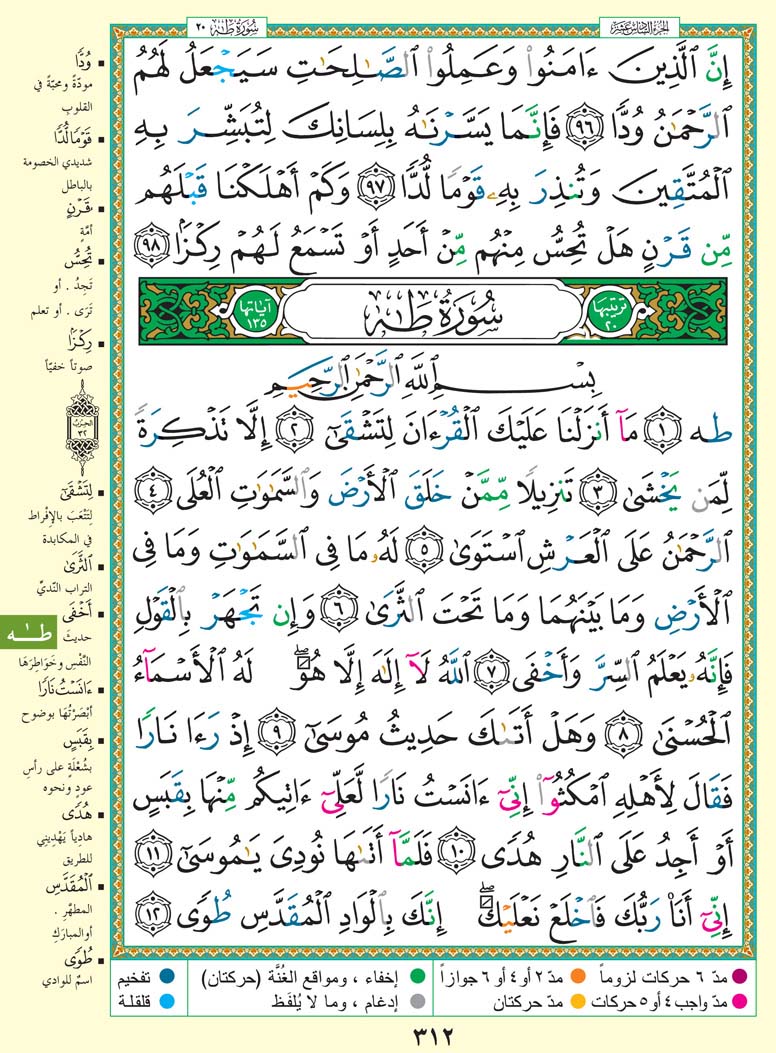 سُورَةُ طه ٢٠
الجزء السادس عشر
إِنَّ ٱلَّذِينَ ءَامَنُوا۟ وَعَمِلُوا۟ ٱلصَّـٰلِحَـٰتِ سَيَجْعَلُ لَهُمُ
ٱلرَّحْمَـٰنُ وُدًّا ٩٦ فَإِنَّمَا يَسَّرْنَـٰهُ بِلِسَانِكَ لِتُبَشِّرَ بِهِ
ٱلْمُتَّقِينَ وَتُنذِرَ بِهِۦ قَوْمًا لُّدًّا ٩٧ وَكَمْ أَهْلَكْنَا قَبْلَهُم
مِّن قَرْنٍ هَلْ تُحِسُّ مِنْهُم مِّنْ أَحَدٍ أَوْ تَسْمَعُ لَهُمْ رِكْزًۢا ٩٨
ترتيبها ٢٠
سُورَةُ طه
آياتها ١٣٥
بِسْمِ ٱللَّهِ ٱلرَّحْمَـٰنِ ٱلرَّحِيمِ
طه ١ مَآ أَنزَلْنَا عَلَيْكَ ٱلْقُرْءَانَ لِتَشْقَىٰٓ ٢ إِلَّا تَذْكِرَةً
لِّمَن يَخْشَىٰ ٣ تَنزِيلًا مِّمَّنْ خَلَقَ ٱلْأَرْضَ وَٱلسَّمَـٰوَٰتِ ٱلْعُلَى ٤
ٱلرَّحْمَـٰنُ عَلَى ٱلْعَرْشِ ٱسْتَوَىٰ ٥ لَهُۥ مَا فِى ٱلسَّمَـٰوَٰتِ وَمَا فِى
ٱلْأَرْضِ وَمَا بَيْنَهُمَا وَمَا تَحْتَ ٱلثَّرَىٰ ٦ وَإِن تَجْهَرْ بِٱلْقَوْلِ
فَإِنَّهُۥ يَعْلَمُ ٱلسِّرَّ وَأَخْفَى ٧ ٱللَّهُ لَآ إِلَـٰهَ إِلَّا هُوَ ۖ لَهُ ٱلْأَسْمَآءُ
ٱلْحُسْنَىٰ ٨ وَهَلْ أَتَىٰكَ حَدِيثُ مُوسَىٰٓ ٩ إِذْ رَءَا نَارًا
فَقَالَ لِأَهْلِهِ ٱمْكُثُوٓا۟ إِنِّىٓ ءَانَسْتُ نَارًا لَّعَلِّىٓ ءَاتِيكُم مِّنْهَا بِقَبَسٍ
أَوْ أَجِدُ عَلَى ٱلنَّارِ هُدًى ١٠ فَلَمَّآ أَتَىٰهَا نُودِىَ يَـٰمُوسَىٰٓ ١١
إِنِّىٓ أَنَا۠ رَبُّكَ فَٱخْلَعْ نَعْلَيْكَ ۖ إِنَّكَ بِٱلْوَادِ ٱلْمُقَدَّسِ طُوًى ١٢
وُدًّا
مودّةً ومحبّةً في
القلوب
قَوْمًا لُّدًّا
شديدي الخصومة
بالباطل
قَرْنٍ
أمّةٍ
تُحِسُّ
تَجِدُ . أو
تَرَى . أو تعلم
رِكْزًا
صوتاً خفيّاً
الحزب ٣٢
لِتَشْقَىٰٓ
لِتَتْعَبَ بالإفْراط
في المكابدة
ٱلثَّرَىٰ
التراب النّديّ
أَخْفَى
حديثَ
النَّفْسِ وخَوَاطِرَهَا
طـه
ءَانَسْتُ نَارًا
أبْصَرْتُهَا بوضوح
بِقَبَسٍ
بشُعْلَةٍ على رأسِ
عودٍ ونحوه
هُدًى
هادياً يَهْدِينِي
للطريق
ٱلْمُقَدَّسِ
المطهَّرِ .
أو المبارَكِ
طُوًى
اسمٌ للوادي
مدّ ٦ حركات لزوماً مدّ ٢ أو ٤ أو ٦ جوازاً إخفاء ، ومواقع الغُنَّة (حركتان) تفخيم
مدّ واجب ٤ أو ٥ حركات مدّ حركتان إدغام ، وما لا يُلفَظ قلقلة
٣١٢